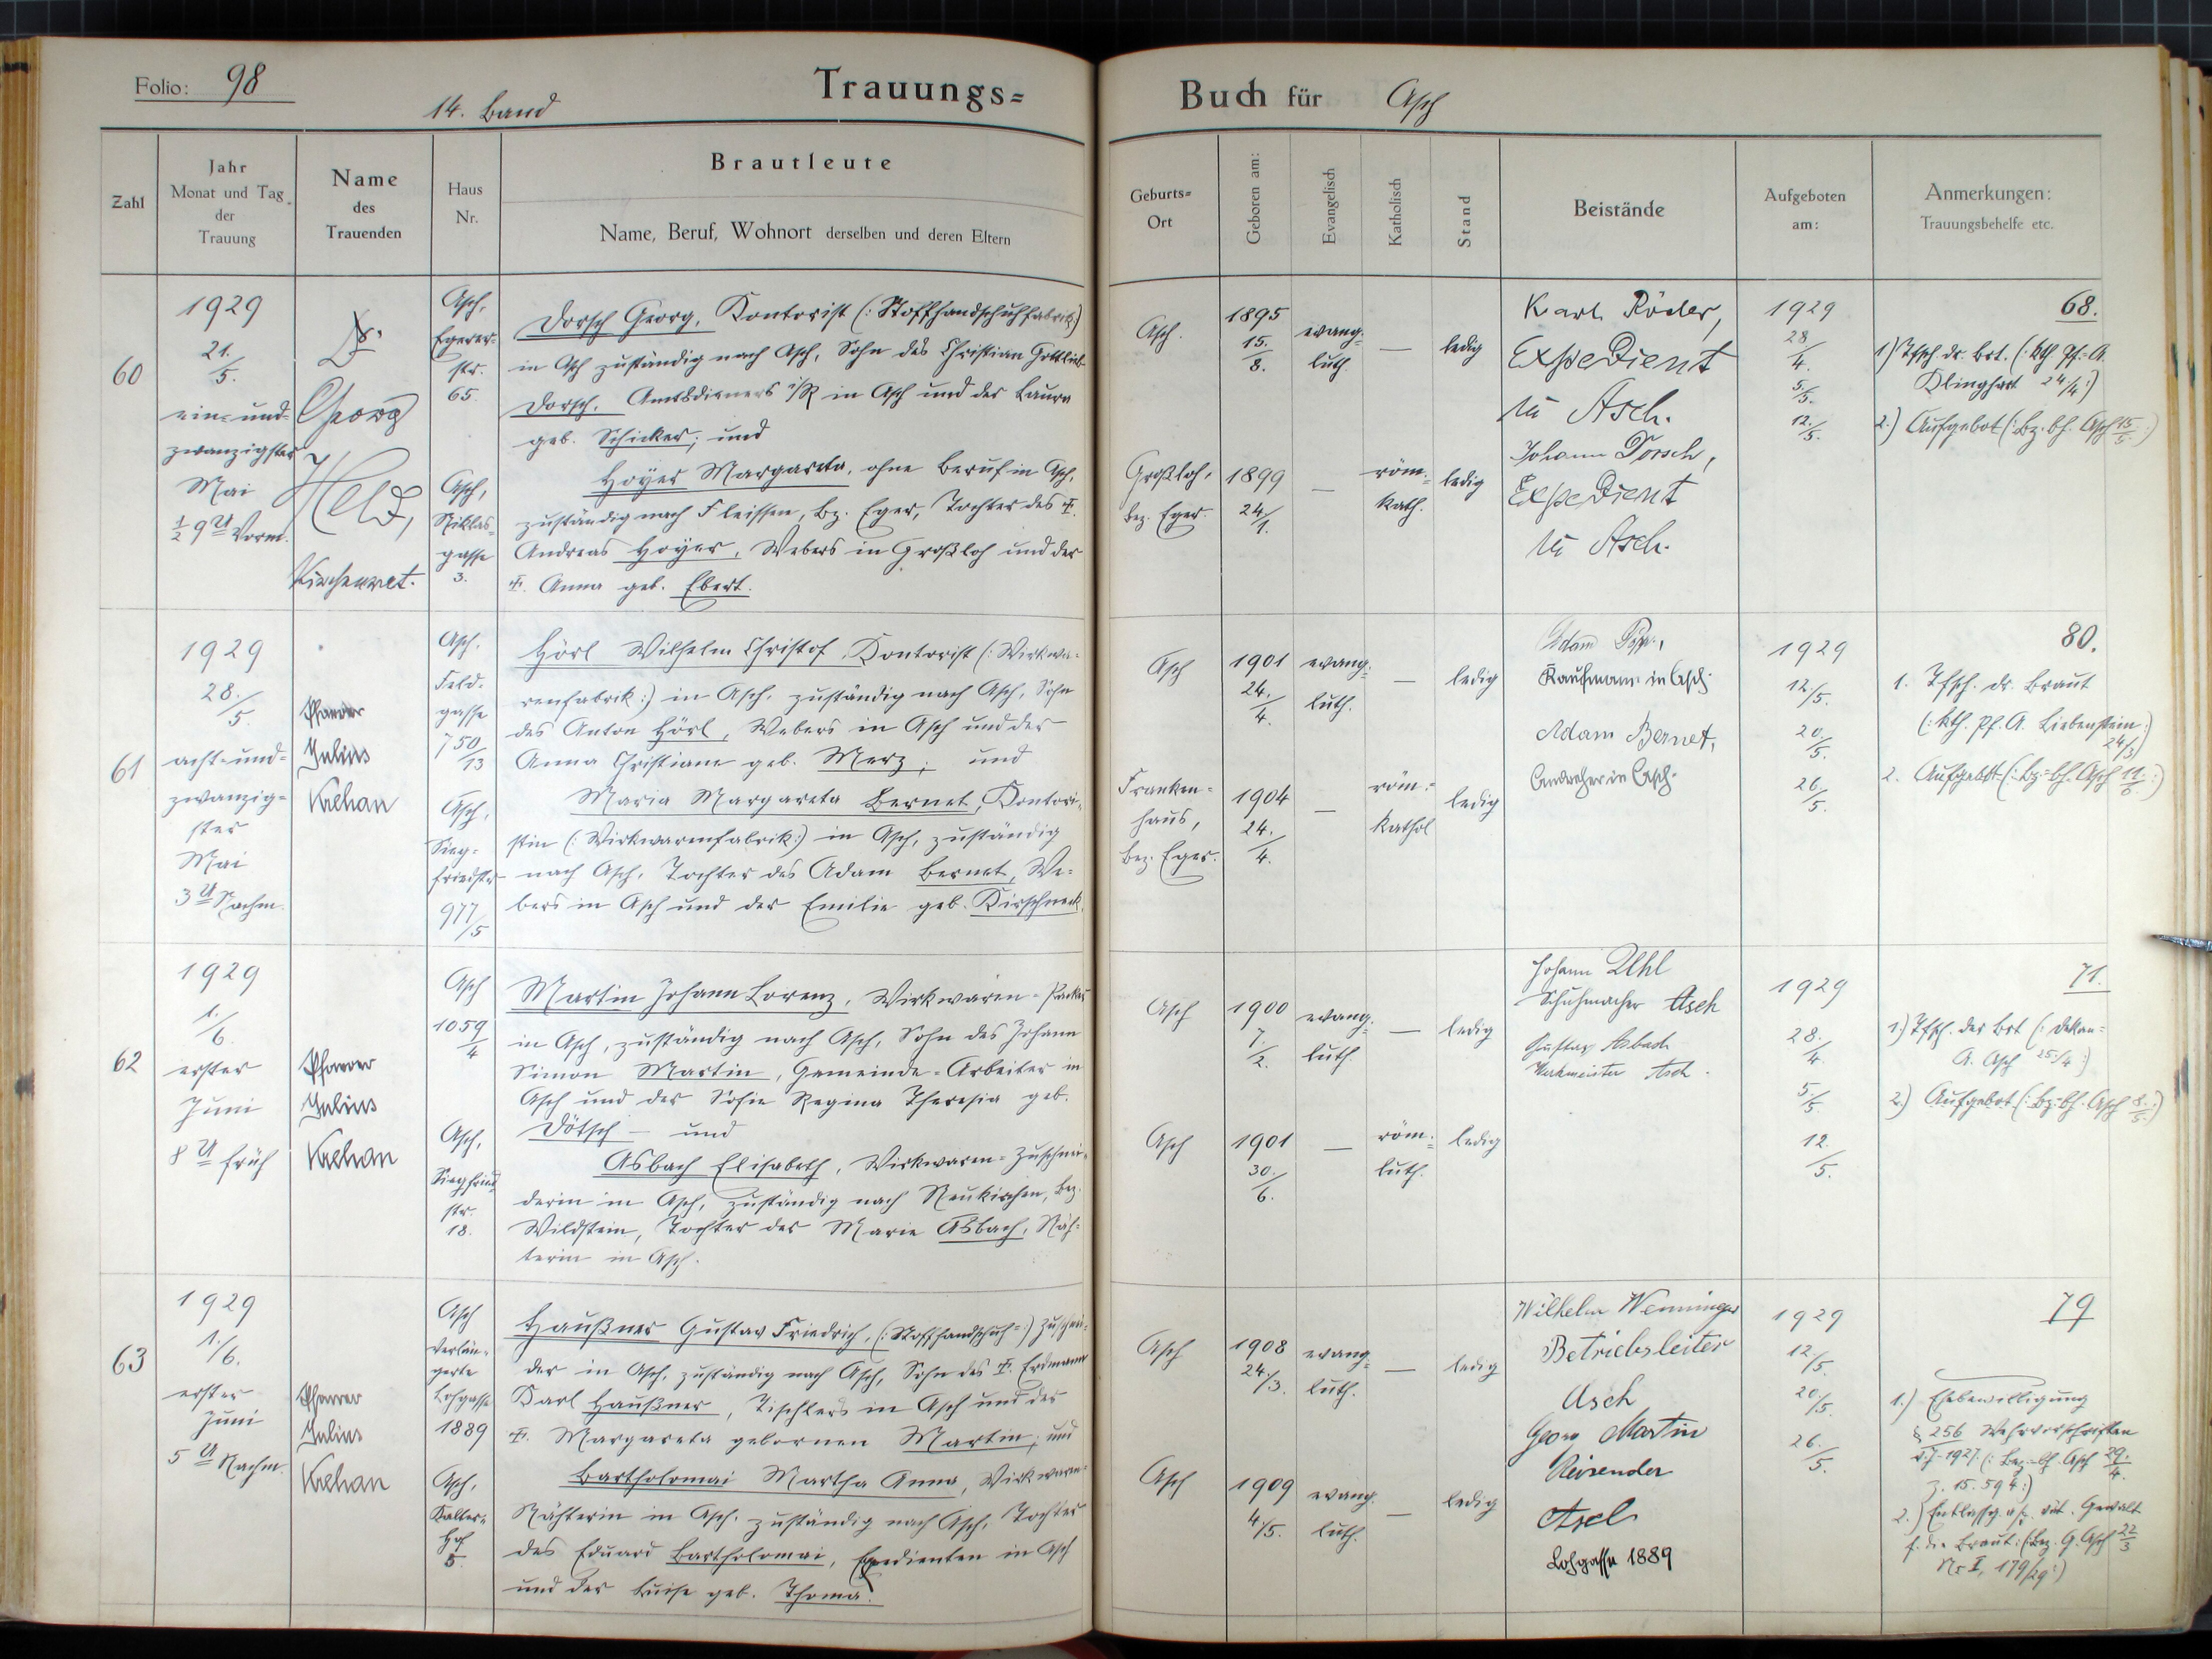 Folio: 98
14. Band
Trauungs=
Buch für Asch
Zahl
Jahr
Monat und Tag
der
Trauung
Name
des
Trauenden
Haus
Nr.
Brautleute
Name, Beruf, Wohnort derselben und deren Eltern
Geburts=
Ort
Geboren am:
Evangelisch
Katholisch
Stand
Beistände
Aufgeboten
am:
Anmerkungen:
Trauungsbehelfe etc.
60
1929
21./5.
ein-und-
zwanzigster
Mai
½ 9 U Vorm.
Dr.
Georg
Held,
Kirchenrat.
Asch,
Egerer-
str.
65.
Dorsch Georg, Kontorist (: Stoffhandschuhfabrik :)
in Asch zuständig nach Asch, Sohn des Christian Gottlieb
Dorsch, Amtsdieners i/R in Asch und der Laura
geb. Schicker; und
Asch,
Niklas-
gasse
3.
Hoyer Margareta, ohne Beruf in Asch,
zuständig nach Fleissen, Bz. Eger, Tochter des †
Andreas Hoyer, Webers in Großloh und der
†. Anna geb. Ebert.
Asch.
1895
15./8.
evang.
luth.
—
ledig
Großloh,
Bez. Eger.
1899
24/1.
—
röm.
kath.
ledig
Karl Röder,
Expedient
in Asch.
Johann Dorsch,
Expedient
in Asch.
1929
28/4.
5./5.
12./5.
68.
1) Tfsch. dr. Brt. (: kth. Pf.-A.
Klinghart 24/4 :)
2.) Aufgebot (: Bz. bh. Asch 15/5. :)
61
1929
28./5.
acht-und-
zwanzig-
ster
Mai
3 U Nachm.
Pfarrer
Julius
Krehan
Asch,
Feld-
gasse
750/13
Hörl Wilhelm Christof, Kontorist (: Wirkwa-
renfabrik :) in Asch, zuständig nach Asch, Sohn
des Anton Hörl, Webers in Asch und der
Anna Christiane geb. Merz; und
Asch,
Sieg-
friedstr.
977/5
Maria Margareta Bernet, Kontori-
stin (: Wirkwarenfabrik :) in Asch, zuständig
nach Asch, Tochter des Adam Bernet, We-
bers in Asch und der Emilie geb. Kirschneck.
Asch
1901
24./4.
evang.
luth.
—
ledig
Franken-
haus,
Bez. Eger.
1904
24./4.
—
röm.
kathol
ledig
Adam
Kaufmann in Asch.
Adam Bernet,
in Asch.
1929
12/5.
20./5.
26./5.
80.
1. Tfsch. dr. Braut
(: kth. Pf. A. Liebenstein
24/3 :)
2. Aufgebot (: Bz-bh. Asch :)
62
1929
1./6.
erster
Juni
8 U früh
Pfarrer
Julius
Krehan
Asch
1059/4
Martin Johann Lorenz, Wirkwaren-Packer
in Asch, zuständig nach Asch, Sohn des Johann
Simon Martin, Gemeinde-Arbeiter in
Asch und der Sofie Regina Theresia geb.
Dötsch — und
Asch,
Siegfried-
str.
18.
Asbach Elisabeth, Wirkwaren-Zuschnei-
derin in Asch, zuständig nach Neukirchen, Bez.
Wildstein, Tochter der Marie Asbach, Näh-
terin in Asch.
Asch
1900
7./2.
evang.
luth.
—
ledig
Asch
1901
30./6.
—
röm.
luth.
ledig
Johann Uhl
Schuhmacher Asch
Gustav Asbach
Werkmeister Asch.
1929
28./4.
5/5.
12./5.
71.
1.) Tfsch. der Brt (: Dekan-
A. Asch 25./4 :)
2.) Aufgebot (: Bz. bh. Asch 8./5. :)
63
1929
1./6.
erster
Juni
5 U Nachm.
Pfarrer
Julius
Krehan
Asch
verlän-
gerte
Lohgasse
1889
Haußner Gustav Friedrich, (: Stoffhandschuh- :) Zuschnei-
der in Asch, zuständig nach Asch, Sohn des †. Erdmann
Karl Haußner, Tischlers in Asch und der
†. Margareta gebornen Martin; und
Asch,
Kalter-
Hof
5.
Bartholomai Martha Anna, Wirkwaren-
Nähterin in Asch, zuständig nach Asch, Tochter
des Eduard Bartholomai, Expedienten in Asch
und der Luise geb. Thoma.
Asch
1908
24./3.
evang.
luth.
—
ledig
Asch
1909
4./5.
evang.
luth.
—
ledig
Wilhelm Wenninger
Betriebsleiter
Asch
Georg Martin
Reisender
Asch
Lohgasse 1889
1929
12/5.
20/5.
26./5.
79
1.) Ehebewilligung
§ 256 Wehrvorschriften
v. J. 1927. (: Bez.-bh. Asch 29./4.
Z. 15.594 :)
2.) Entlassg. a/s. vät. Gewalt
f. die Braut: (: Bez. G. Asch 22/3
Nc I, 179/29 :)